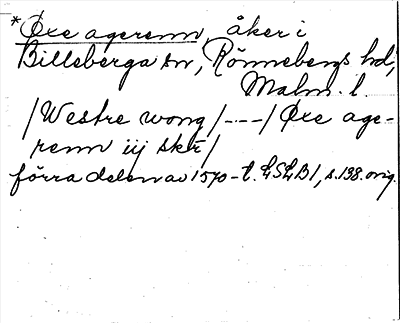 *Øxe agerenn, åker i
Billeberga sn, Rönnebergs hd,
Malm. l.
/Westre wong/-.--/Øxe age-
renn iij skr/
förra delen av 1570-t. LSLB1, s.198. orig.